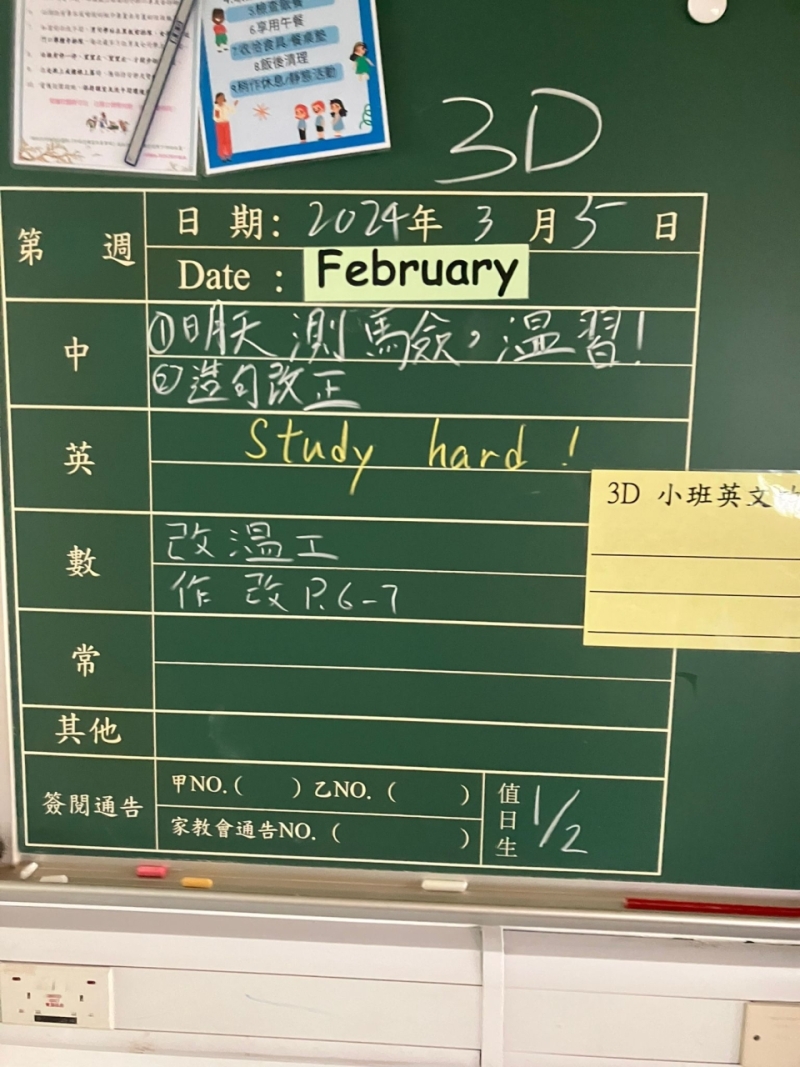 5.檢查飯餐
6.享用午餐
7.收拾食具/餐桌墊
8.飯後清理
9.稍作休息/靜態活動
3D
第 週
日 期: 2024年 3 月 5 日
Date : February
中
①明天測驗，溫習!
②造句改正
英
Study hard !
3D 小班英文
數
改溫工
作 改 P.6-7
常
其他
簽閱通告
甲NO.( ) 乙NO. ( )
家教會通告NO. ( )
值日生
1/2